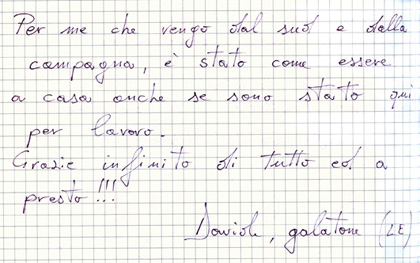 Per me che vengo dal sud e dalla
campagna, è stato come essere
a casa anche se sono stato qui
per lavoro.
Grazie infinito di tutto ed a
presto!!!
Davide, galatone (LE)